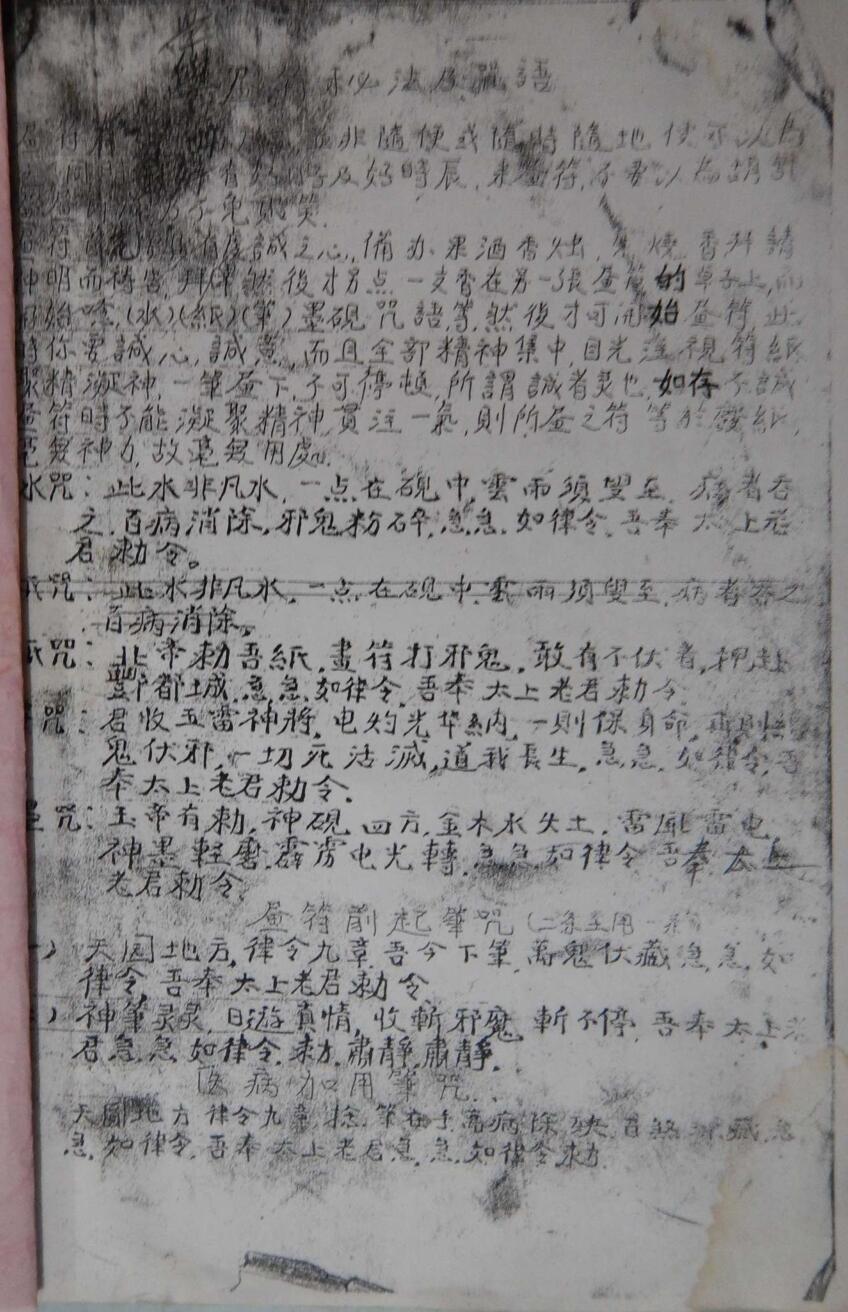 符秘法及咒語
非隨便或隨時隨地便可以為
有 及好時辰,來畫符,不要以為胡乱
不免 笑.
符首先 有虔誠之心,備办果酒香灶,先燒香拜請
神明而禱告,拜畢然後才另点一支香在另一張畫符的卓子上,而
開始唸,(水)(紙)(筆)墨硯咒語等,然後才可開始畫符此
時你要誠心,誠意,而且全部精神集中,目光注視符紙
聚精凝神,一筆畫下,不可停頓,所謂誠者灵也,如存不誠
畫符時不能凝聚精神,貫注一氣,則所畫之符等於廢紙,
毫無神力,故毫無用處.
水咒:此水非凡水,一点在硯中,雲雨須臾至,病者吞
之,百病消除,邪鬼粉碎,急急,如律令,吾奉太上老
君勅令。
咒:此水非凡水,一点在硯中,雲雨須臾至,病者吞之
百病消除,
紙咒:北帝勅吾紙,畫符打邪鬼,敢有不伏者,押赴
酆都城,急急,如律令,吾奉太上老君勅令
咒:君收五雷神將,电灼光华納,一則保身命,再則
鬼伏邪,一切死活滅,道我長生,急急,如律令,吾
奉太上老君勅令.
墨咒:玉帝有勅,神硯四方,金木水火土,雷風雷电,
神墨軽磨,霹雳电光轉,急急,如律令吾奉太上
老君勅令.
畫符前起筆咒
天圓地方,律令九章,吾今下筆,萬鬼伏藏,急,急,如
律令,吾奉太上老君勅令
神筆灵灵,日遊真情,收斬邪魔,斬不停,吾奉太上老
君,急急,如律令,勅,肅靜,肅靜.
医病加用筆咒.
天圓地方律令九章,捻筆在手,萬病除殃,百煞 藏,急
急,如律令,吾奉太上老君,急,急,如律令,勅